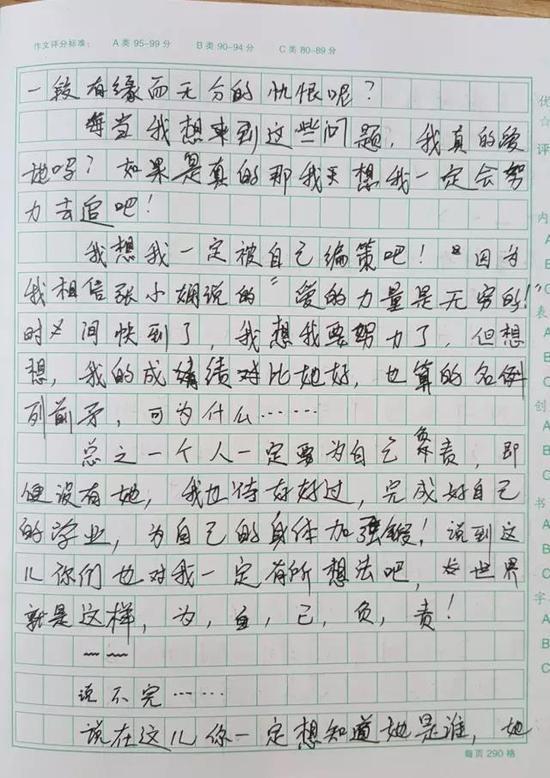 作文评分标准： A类95-99分 B类90-94分 C类80-89分
一段有缘而无分的仇恨呢？
每当我想来到这些问题，我真的爱
她吗？如果是真的那我天想我一定会努
力去追吧！
我想我一定被自己编策吧！“因为
我相信张小娴说的“爱的力量是无穷的！”
时间快到了，我想我要努力了，但想
想，我的成绩对比她好，也算的名例
列前矛，可为什么……
总之一个人一定要为自己负责，即
便没有她，我也待好好过，完成好自己
的学业，为自己的身体加强锻！说到这
儿你们也对我一定有所想法吧，世界
就是这样，为，自，己，负，责！
~~
说不完……
说在这儿你一定想知道她是谁，她
每页290格
优
☆
评
内
A
B
C
表
A
B
C
创
A
B
C
书
A
字
A
B
C